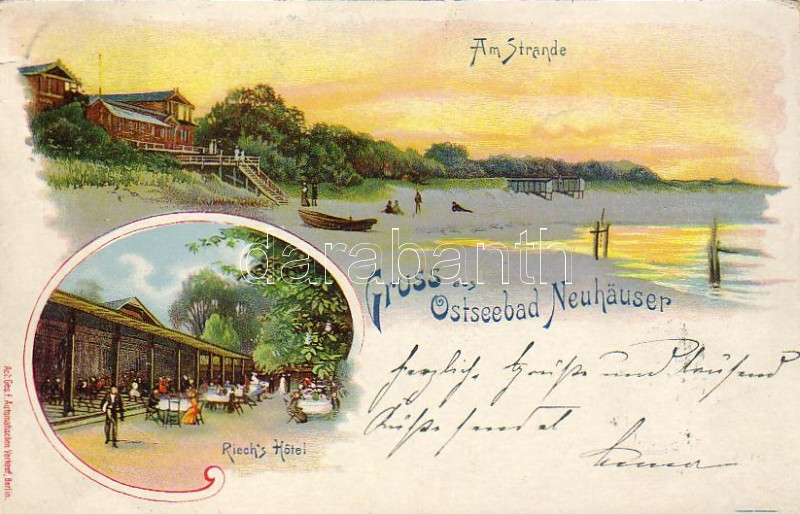 Am Strande
darabanth
Gruss a,
Ostseebad Neuhäuser
herzliche Grüße und tausend
Küße sendet
Riech's Hôtel
Act. Ges. f. Automatischen Verkauf, Berlin.